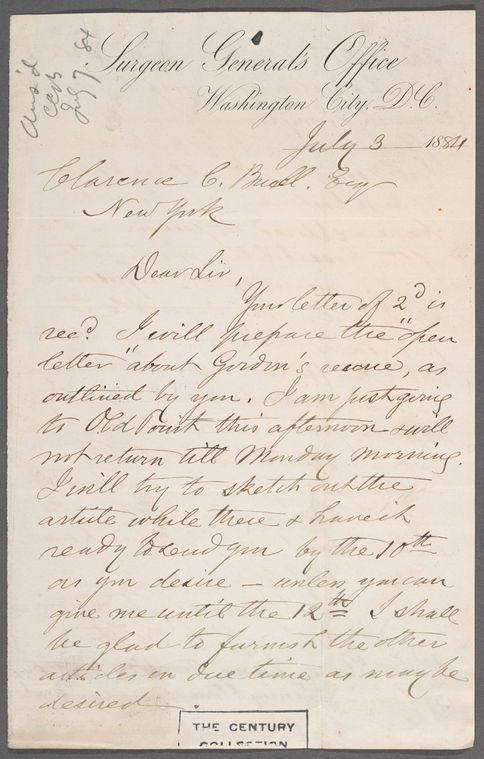 Ans'd
CCB
July 7. 84
Surgeon General's Office
Washington City, D.C.
July 3 1884
Clarence C. Buell. Esq
New York
Dear Sir,
Your letter of 2d is
recd. I will prepare the "open
letter" about Gordon's rescue, as
outlined by you. I am just going
to Old Point this afternoon & will
not return till Monday morning.
I will try to sketch out the
article while there & have it
ready to send you by the 10th
as you desire – unless you can
give me until the 12th I shall
be glad to furnish the other
articles in due time as may be
desired.
THE CENTURY
COLLECTION